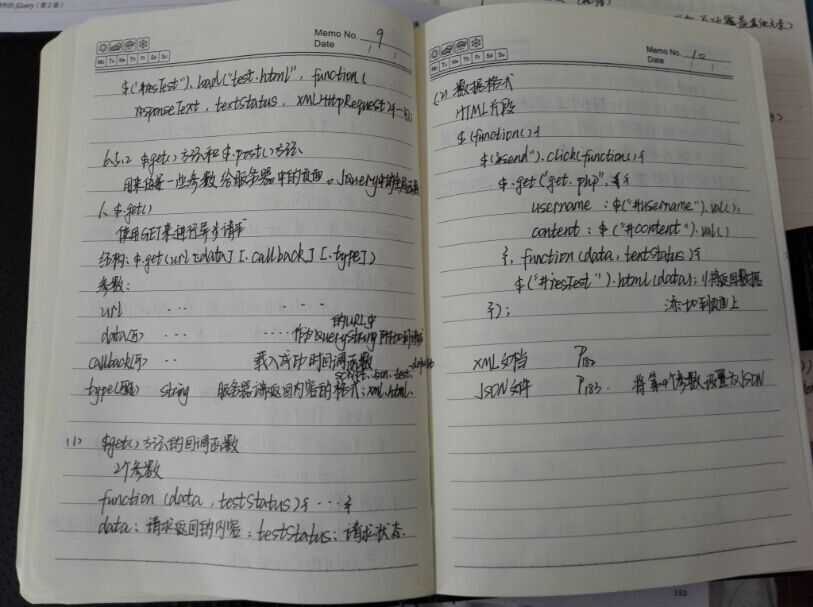 jQuery (第2版)
Memo No. 9
Date / /
Mo Tu We Th Fr Sa Su
$("#resTest").load("test.html", function(
responseText, textStatus, XMLHttpRequest){…});
6.5.2 $.get()方法和$.post()方法
用来传递一些参数给服务器中的页面。Jquery中的全局函数
1、$.get()
使用GET来进行异步请求
结构:$.get(url [,data] [,callback] [,type])
参数:
url … …
的URL中
data(可) … …作为QueryString附加到请求
callback(可) … 载入成功时回调函数
script, json, text, default
type(可选) string 服务器端返回内容的格式:xml, html,
(1) $get()方法的回调函数
2个参数
function (data, testStatus){ … }
data:请求返回的内容;testStatus:请求状态.
Memo No. 10
Date / /
Mo Tu We Th Fr Sa Su
(2) 数据格式
HTML片段
$(function(){
$(#send").click(function(){
$.get("get.php", {
username : $("#username").val(),
content : $("#content").val()
}, function (data, textStatus){
$("#resTest").html(data); //将返回数据
}); 添加到页面上
XML文档 P182
JSON文件 P183. 将第4个参数设置为JSON